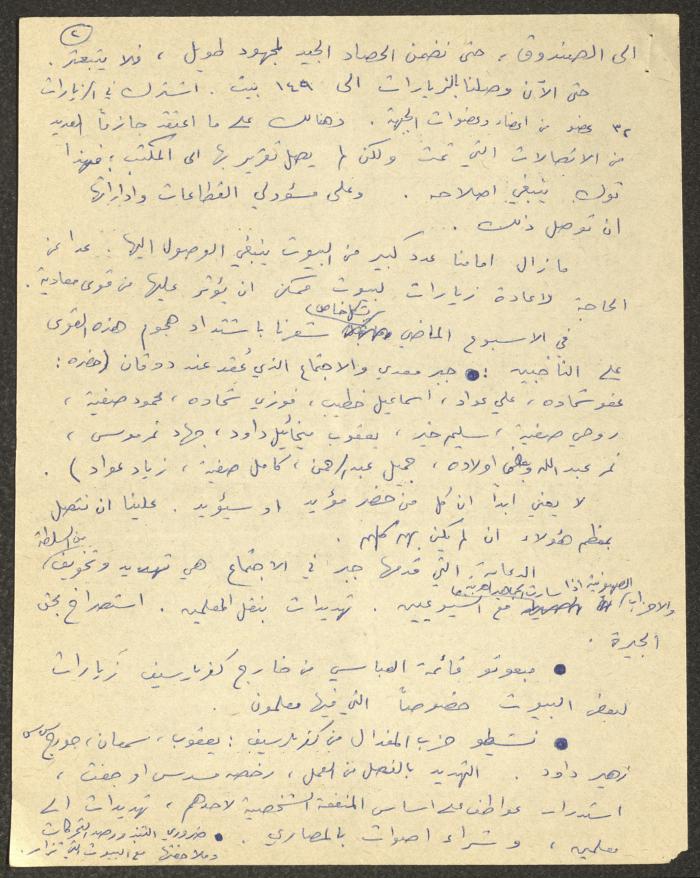 ٢
الى الصندوق، حتى نضمن الحصاد الجيد لمجهود طويل، فلا يتبعثر.
حتى الآن وصلنا بالزيارات الى ١٤٩ بيت. اشترك في الزيارات
٣٢ عضو من اعضاء وعضوات الجبهة. وهنالك على ما اعتقد جازماً العديد
من الاتصالات التي تمت ولكن لم يصل تقرير بها الى المكتب؛ فهذا
ينبغي اصلاحه. وعلى مسؤولي القطاعات واداراتها
ان توصل ذلك.
ما زال امامنا عدد كبير من البيوت ينبغي الوصول اليها. عدا عن
الحاجة لاعادة زيارات لبيوت ممكن ان يؤثر عليها من قوى معادية.
في الاسبوع الماضي بشكل خاص شعرنا باشتداد هجوم هذه القوى
على الناخبين: • جبر معدي والاجتماع الذي عُقد عند دوقان (حضره:
عفو شحاده، علي عواد، اسماعيل خطيب، فوزي شحاده، محمود صفية،
روحي صفية، سليم خير، يعقوب ميخائيل داود، جهاد نمر موسى،
نمر عبد الله وبعض اولاده، جميل عبد الرحمن، كامل صفية، زياد عواد).
لا يعني ابداً ان كل من حضر مؤيد او سيؤيد. علينا ان نتصل
بمعظم هؤلاء ان لم يكن بهم كلهم.
الدعاية التي قدمها جبر في الاجتماع هي تهديد وتخويف من السلطة
والاحزاب الصهيونية اذا سارت الجماهير العربية مع الشيوعيين. تهديدات بنقل المعلمين. استصراخ بحق
الجيرة.
• مبعوثو قائمة العباسي من خارج كفرياسيف زيارات
لبعض البيوت خصوصاً التي فيها معلمون.
• نشيطو حزب المفدال من كفرياسيف: يعقوب، سمعان، جورج
زهير داود. التهديد بالفصل من العمل، رخصه مسدس او جفت،
استدرار عواطف على اساس المنفعة الشخصية لاحدهم، تهديدات الى
معلمين، وشراء اصوات بالمصاري. • ضروري التنبه ورصد التحركات
وملاحقتها مع البيوت التي تزار.